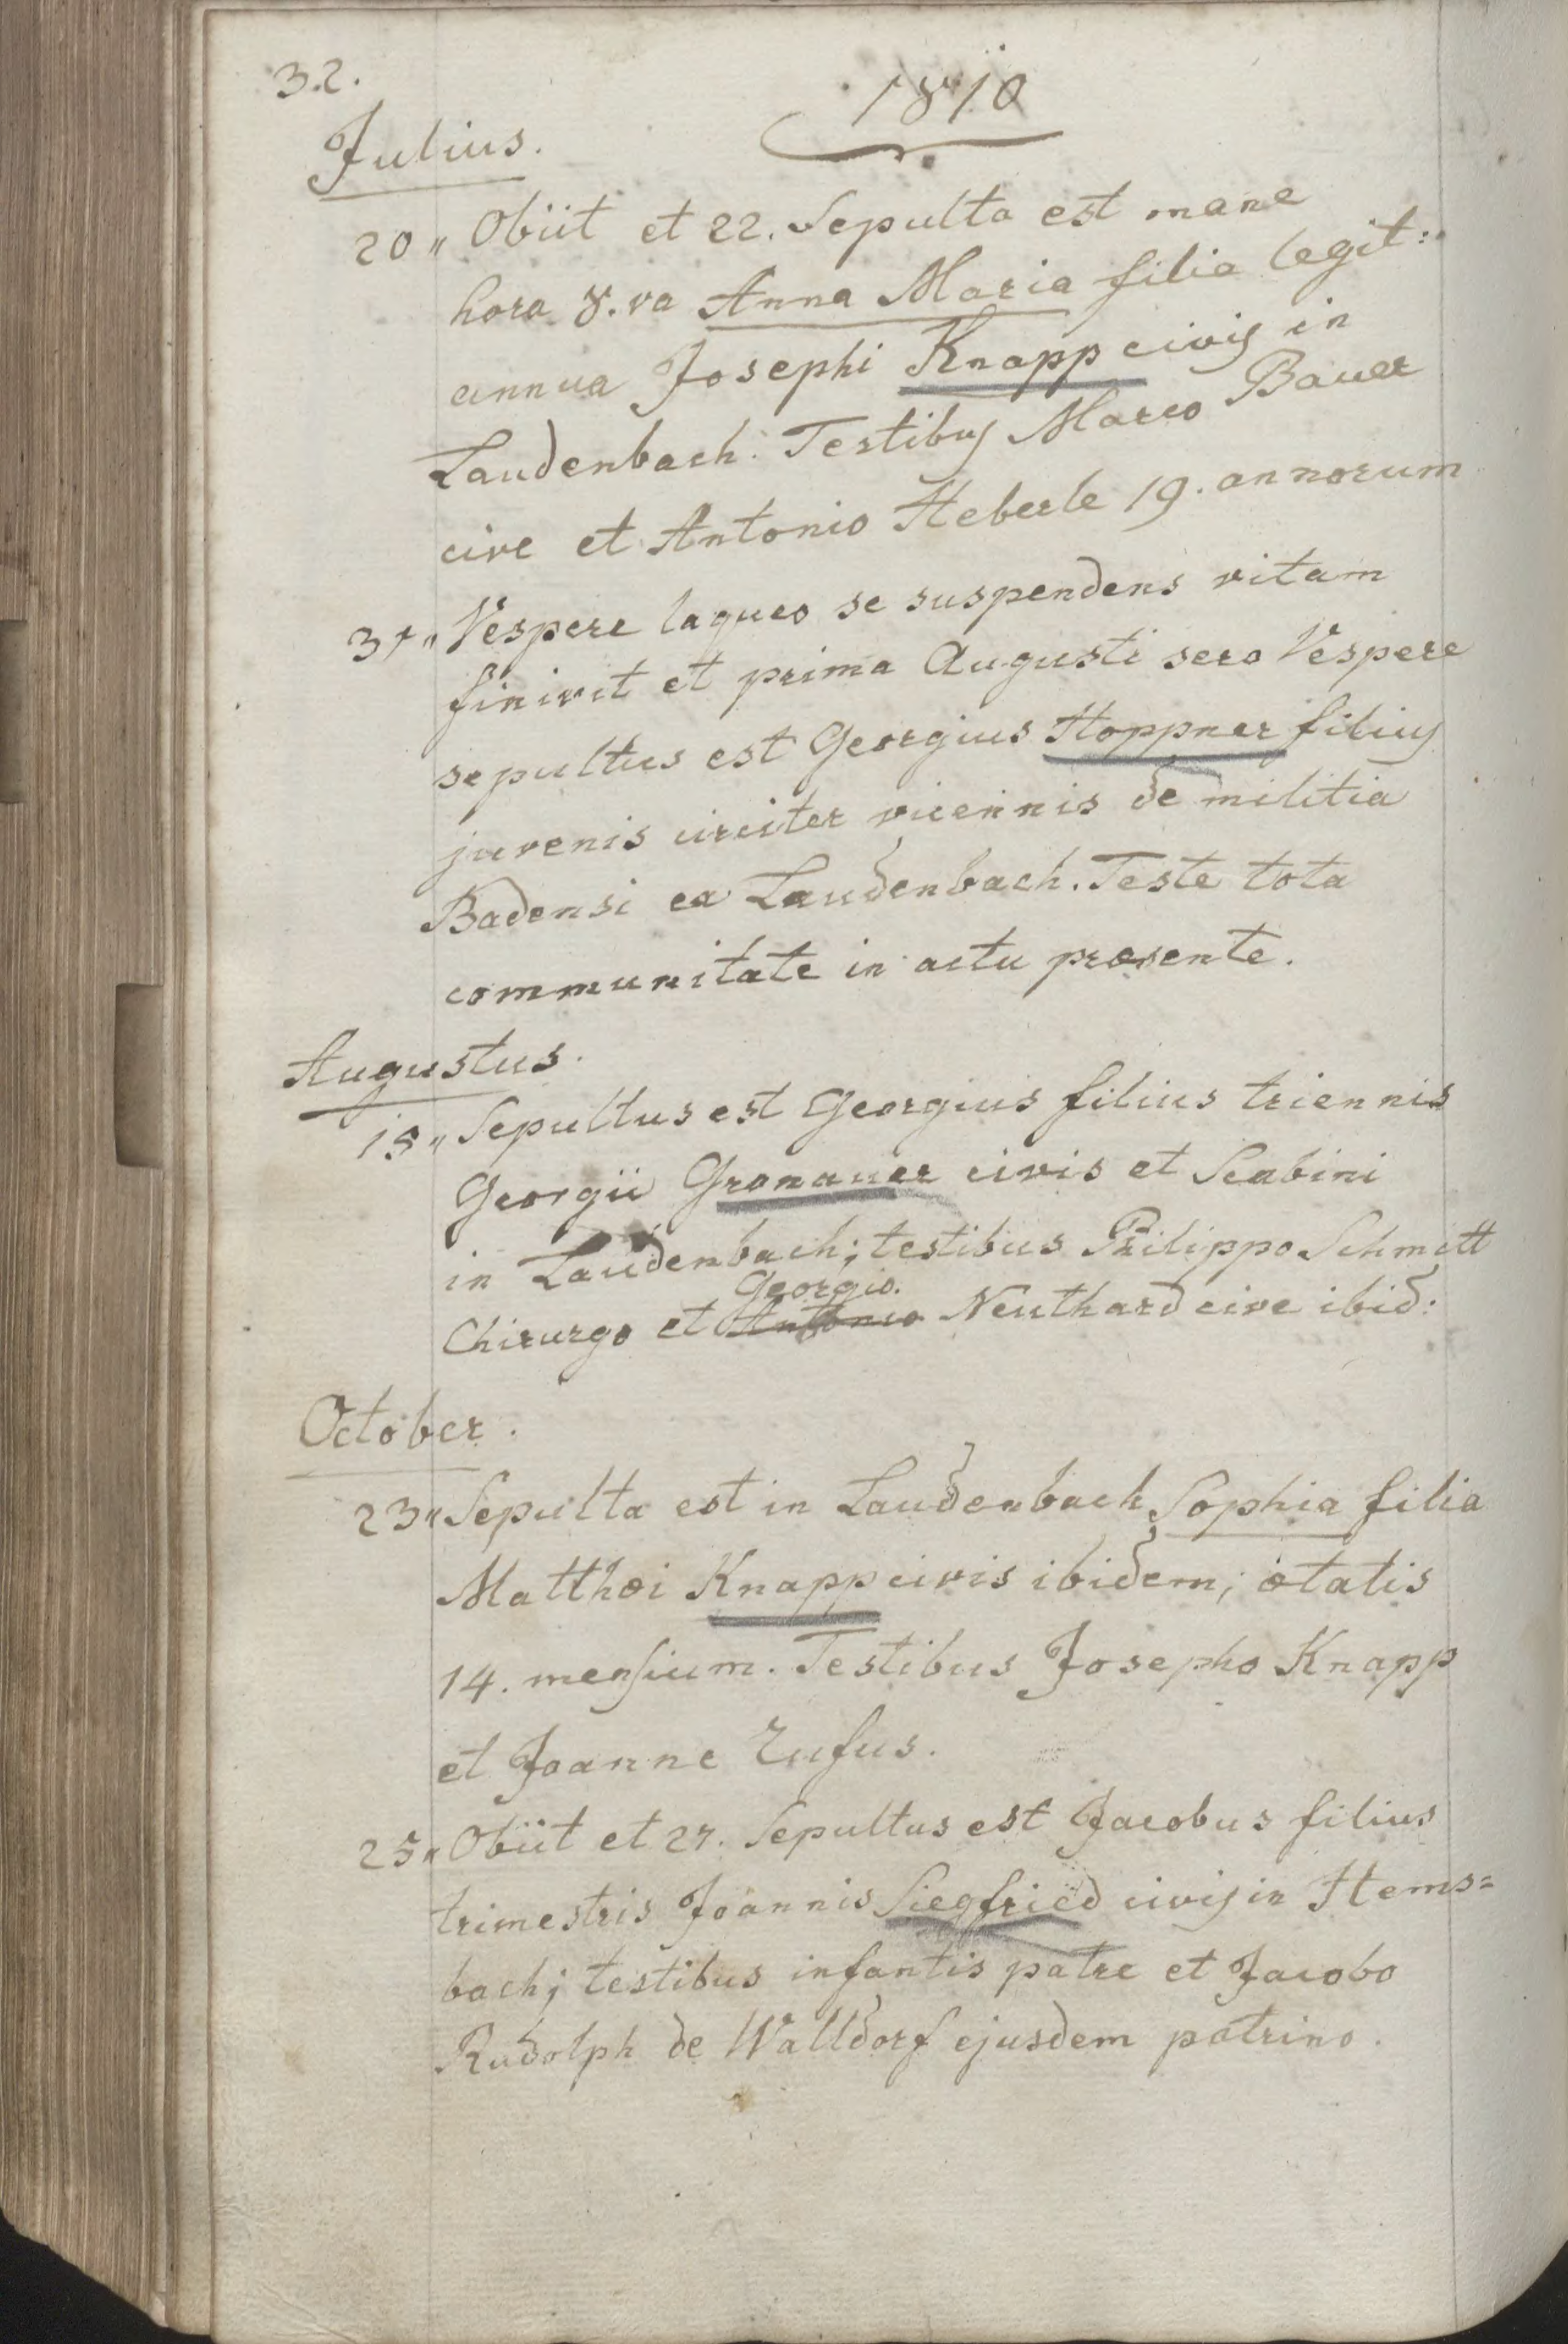 32.
1810
Julius.
20" Obiit et 22. Sepulta est mane
hora 8.va Anna Maria filia legit:
annua Josephi Knapp civis in
Laudenbach. Testibus Marco Bauer
cive et Antonio Heberle 19. annorum
31" Vespere laqueo se suspendens vitam
finivit et prima Augusti sero Vespere
sepultus est Georgius Hoppner filius
juvenis circiter vicennis de militia
Badensi ex Laudenbach. Teste tota
communitate in actu præsente.
Augustus.
18" Sepultus est Georgius filius triennis
Georgii Gronauer civis et Scabini
in Laudenbach; testibus Philippo Schmitt
Georgio.
Chirurgo et Antonio Neuthard cive ibid:
October.
23" Sepulta est in Laudenbach Sophia filia
Matthæi Knapp civis ibidem; ætatis
14. mensium. Testibus Josepho Knapp
et Joanne Rufus.
25" Obiit et 27. Sepultus est Jacobus filius
trimestris Joannis Siegfried civis in Hems=
bach; testibus infantis patre et Jacobo
Rudolph de Walldorf ejusdem patrino.